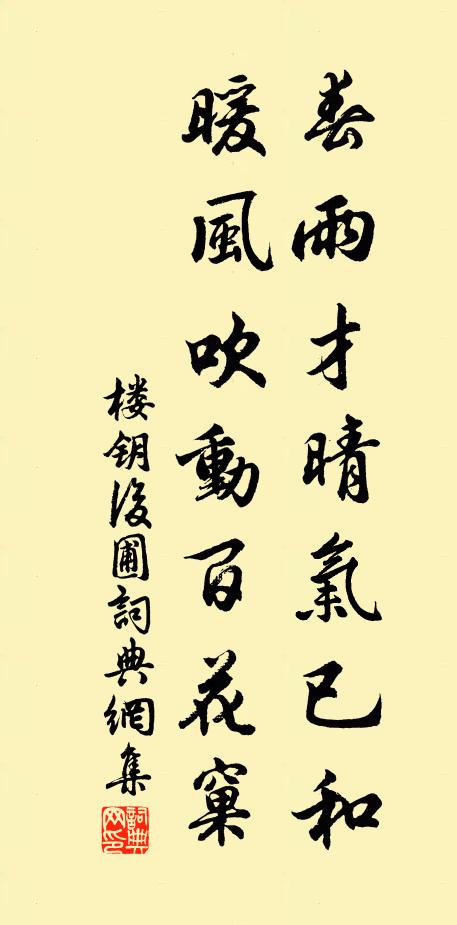 春雨才晴氣已和
暖風吹動百花窠
楼钥後圃詞典網集
詞典网印